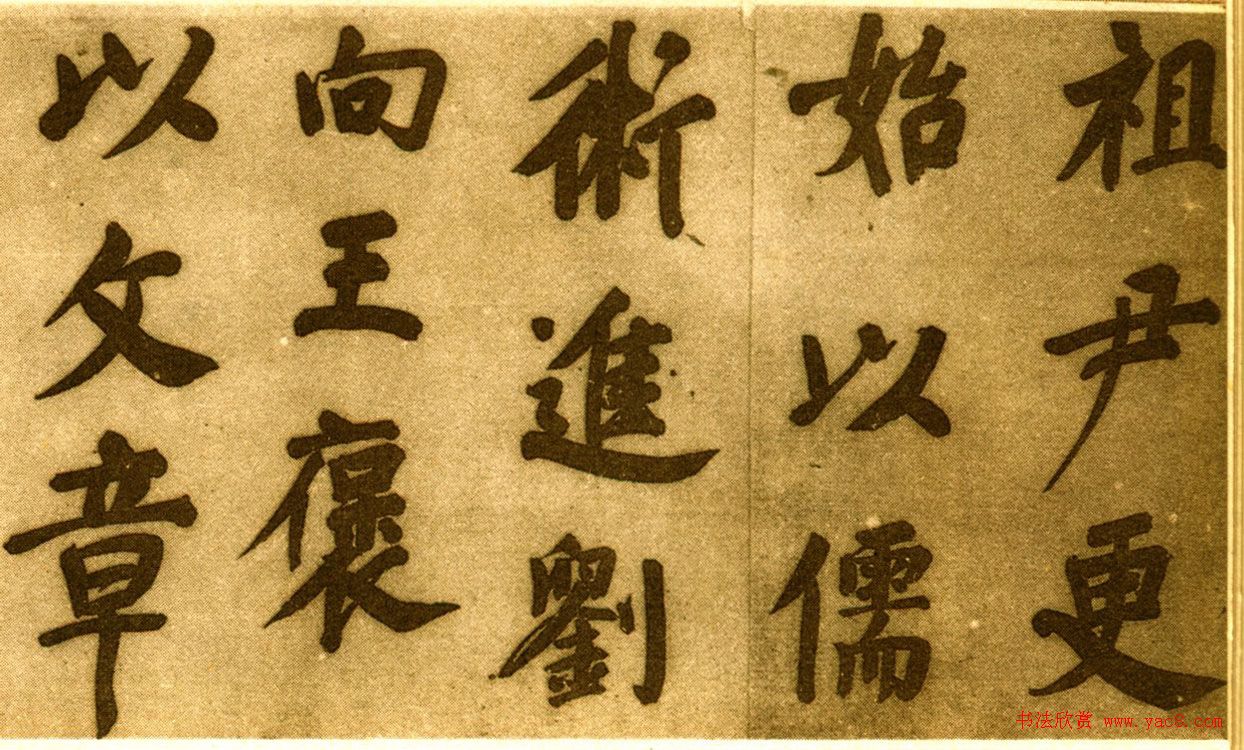 祖尹更
始以儒
術進劉
向王褒
以文章
书法欣赏 www.yac8.com